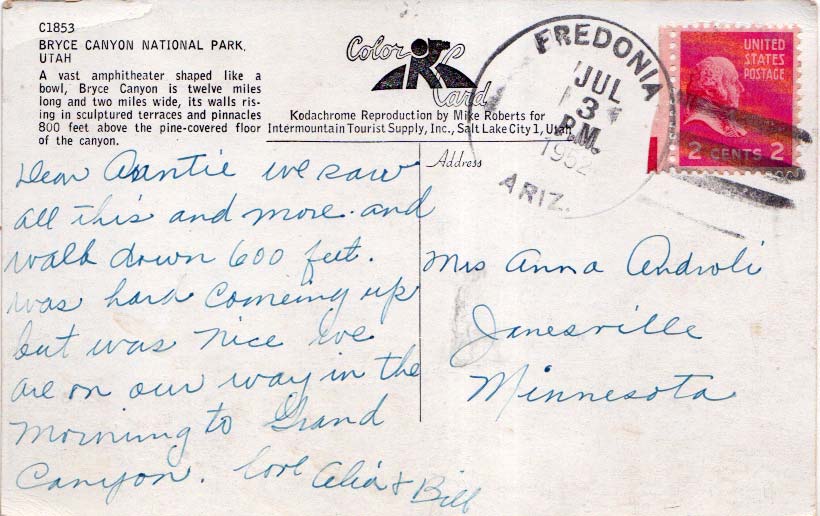 C1853
BRYCE CANYON NATIONAL PARK,
UTAH
A vast amphitheater shaped like a
bowl, Bryce Canyon is twelve miles
long and two miles wide, its walls ris-
ing in sculptured terraces and pinnacles
800 feet above the pine-covered floor
of the canyon.
Color Card
Kodachrome Reproduction by Mike Roberts for
Intermountain Tourist Supply, Inc., Salt Lake City 1, Utah
FREDONIA
JUL
3
P.M.
1952
ARIZ.
UNITED
STATES
POSTAGE
2 CENTS 2
Dear Auntie we saw
all this and more and
walk down 600 feet.
was hard comeing up
but was nice we
are on our way in the
morning to Grand
Canyon. love & Bill
Address
Mrs Anna Androli
Janesville
Minnesota